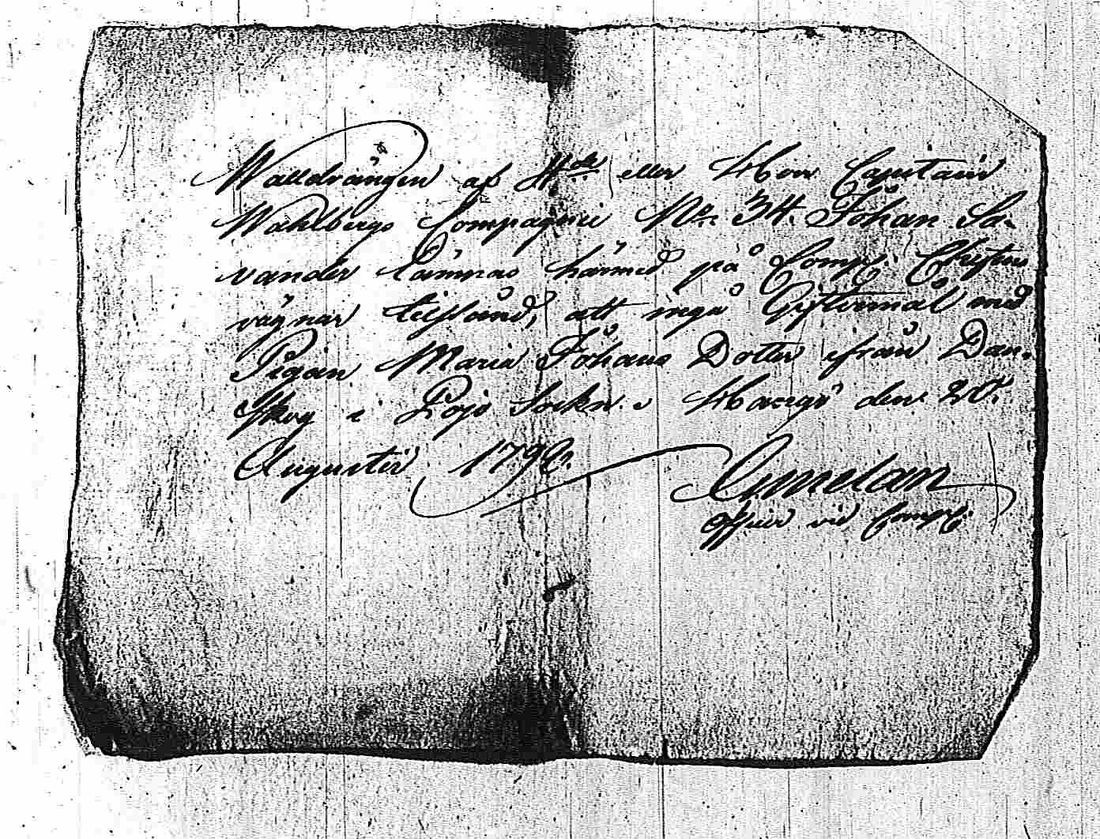 Walldrängen af H:de eller Herr Capitain
Wahlbergs Compagnie No: 34. Johan Sa-
vander lämnas härmed på Comp:
vägnar tilstånd, att ingå Giftermål med
Pigan Maria Johans Dotter ifrån Dan-
skog i Pojo Sockn. den 20.
Augusti 179
Officer vid Comp: